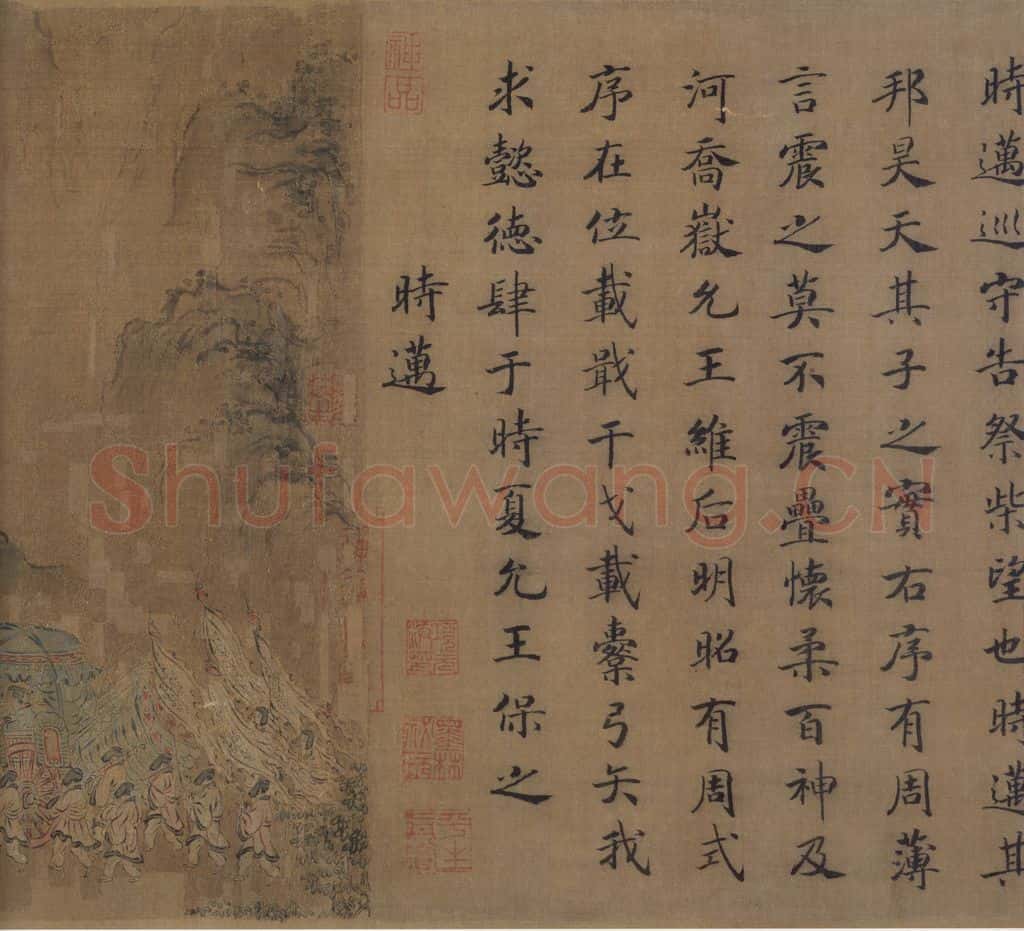 時邁巡守告祭柴望也時邁其
邦昊天其子之實右序有周薄
言震之莫不震疊懷柔百神及
河喬嶽允王維后明昭有周式
序在位載戢干戈載櫜弓矢我
求懿德肆于時夏允王保之
時邁
神品
Shufawang.CN